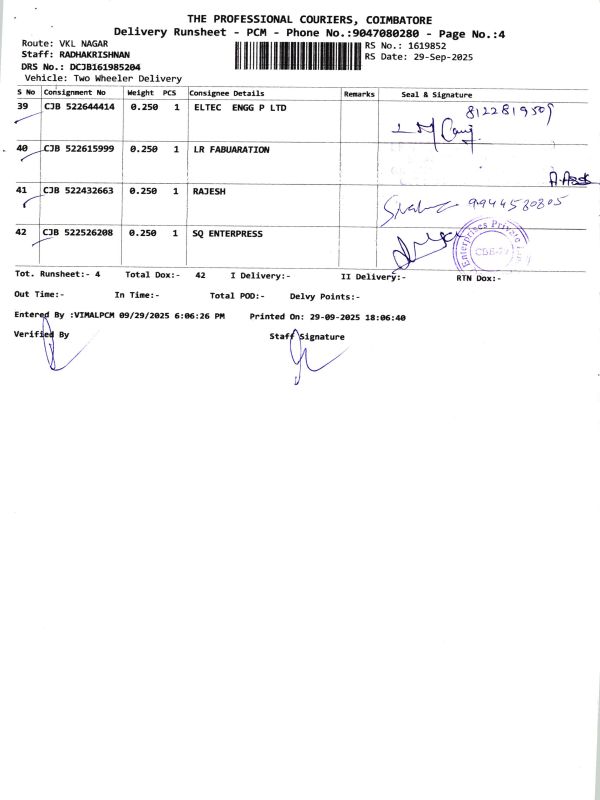 THE PROFESSIONAL COURIERS, COIMBATORE
Delivery Runsheet - PCM - Phone No.:9047080280 - Page No.:4
Route: VKL NAGAR
RS No.: 1619852
Staff: RADHAKRISHNAN
RS Date: 29-Sep-2025
DRS No.: DCJB161985204
Vehicle: Two Wheeler Delivery
S No Consignment No Weight PCS Consignee Details Remarks Seal & Signature
39 CJB 522644414 0.250 1 ELTEC ENGG P LTD 8122819509
40 CJB 522615999 0.250 1 LR FABUARATION
41 CJB 522432663 0.250 1 RAJESH 9944580805
42 CJB 522526208 0.250 1 SQ ENTERPRESS
Enterprises Private
Tot. Runsheet:- 4 Total Dox:- 42 I Delivery:- II Delivery:- RTN Dox:-
Out Time:- In Time:- Total POD:- Delvy Points:-
Entered By :VIMALPCM 09/29/2025 6:06:26 PM Printed On: 29-09-2025 18:06:40
Verified By Staff Signature